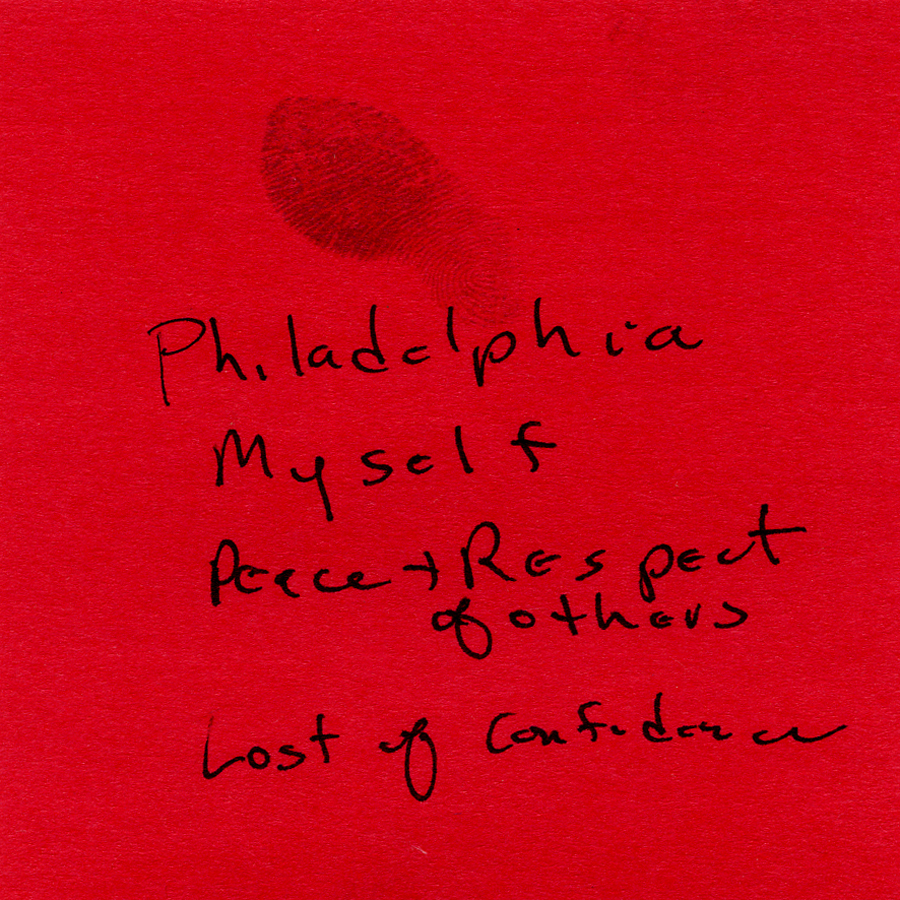 Philadelphia
Myself
Peace + Respect
of others
Lost of Confidence